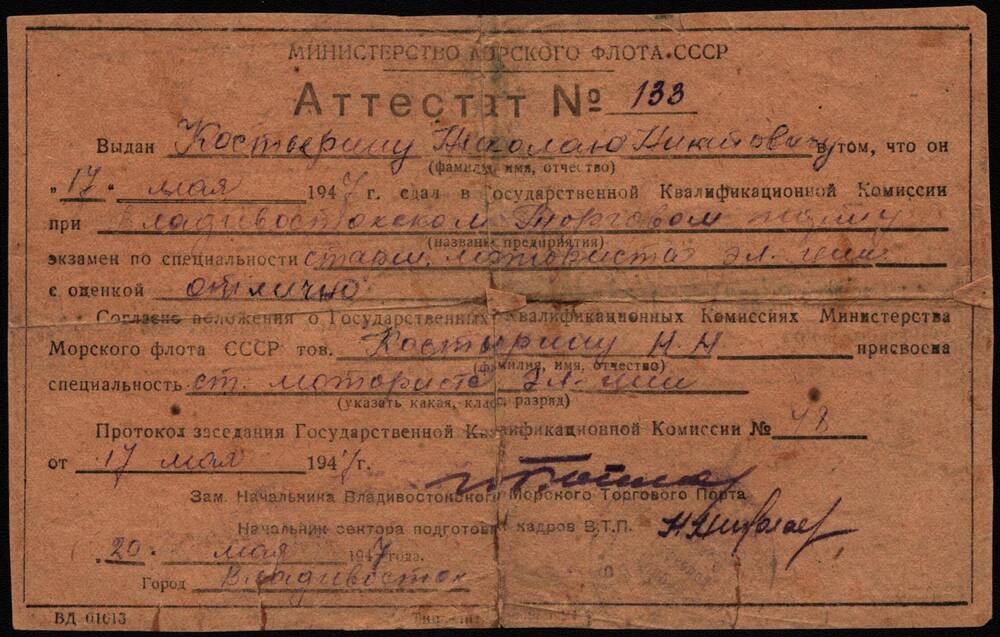 МИНИСТЕРСТВО МОРСКОГО ФЛОТА СССР
Аттестат № 133
Выдан Костырину Николаю Никитовичу в том, что он
(фамилия, имя, отчество)
„17" мая 1947 г. сдал в Государственной Квалификационной Комиссии
при Владивостокском Торговом порту
(название предприятия)
экзамен по специальности старш. моториста эл.
с оценкой отлично
Согласно положения о Государственных Квалификационных Комиссиях Министерства
Морского флота СССР тов. Костырину Н. Н. присвоена
(фамилия, имя, отчество)
специальность ст. моториста эл.
(указать какая, класс, разряд)
Протокол заседания Государственной Квалификационной Комиссии № 48
от 17 мая 1947 г.
Зам. Начальника Владивостокского Морского Торгового Порта
Начальник сектора подготовки кадров В.Т.П.
„20" мая 1947 года.
Город Владивосток
ВД 01613